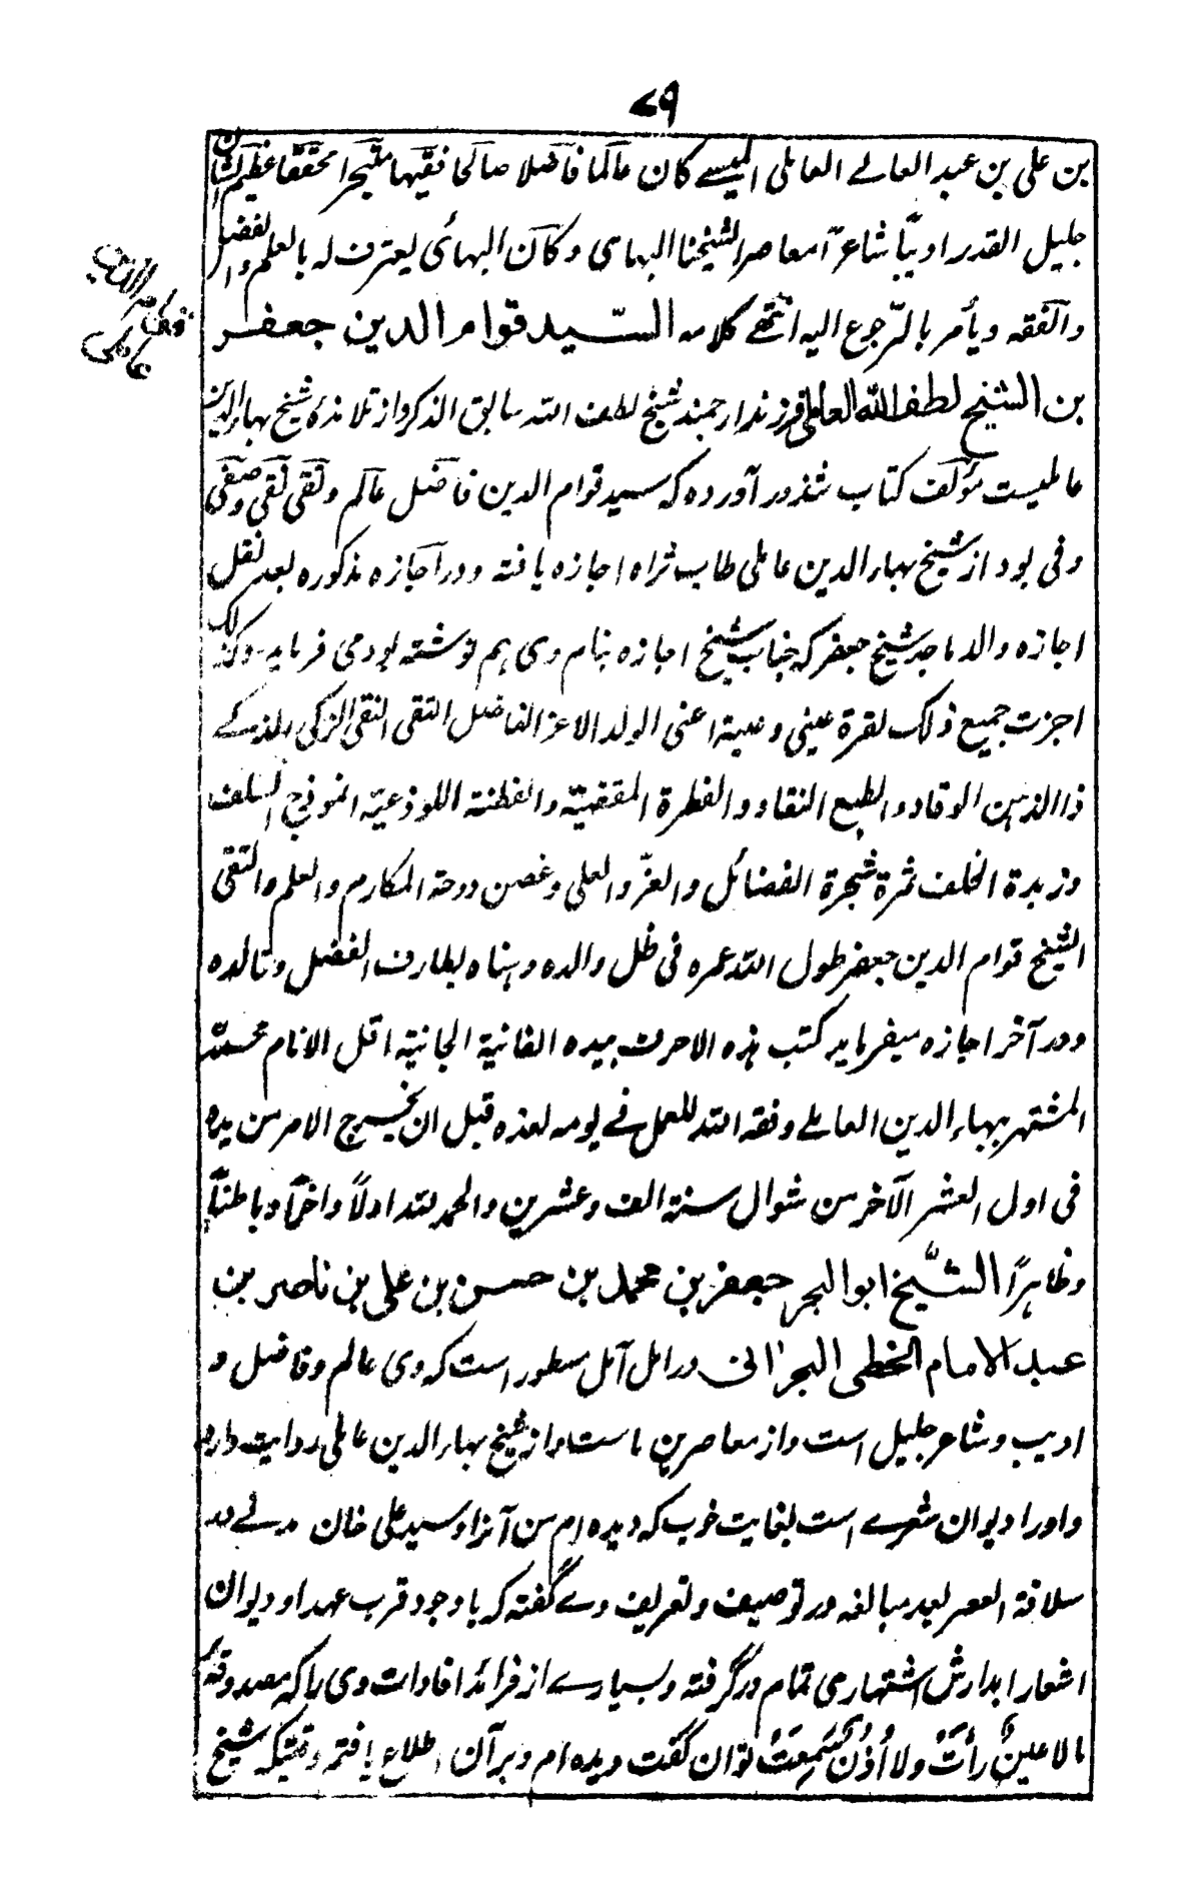 ٧٩
بن علی بن عبد العالے العاملی المیسے کان عالما فاضلا صالحا فقیها متبحرا محققا عظیم الشان
جلیل القدر ادیبًا شاعرًا معاصر الشیخنا البهائی و کان البهائی یعترف له بالعلم والفضل
والفقه و یأمر بالرّجوع الیه انتهے کلامه السّید قوام الدین جعفر
قوام الدین
عاملی
بن الشیخ لطف الله العاملی فرزند ارجمند شیخ لطف الله سابق الذکر و از تلامذه شیخ بهاء الدین
عاملیست مؤلف کتاب شذور آورده که سید قوام الدین فاضل عالم و تقی نقی و صفی
وفی بود از شیخ بهاء الدین عاملی طاب ثراه اجازه یافته و در اجازه مذکوره بعد نقل
اجازه والد ماجد شیخ جعفر که جناب شیخ اجازه بنام وی هم نوشته بود می فرماید و کذلک
اجزت جمیع ذلک لقرة عینی و عینه اعنی الولد الاعز الفاضل التقی النقی الزکی الذکے
ذا الذهن الوقاد و الطبع النقاد و الفطرة المقضیّة و الفطنة اللوذعیّة انموذج السلف
و زبدة الخلف ثمرة شجرة الفضائل و العزّ و العلی و غصن دوحة المکارم و العلم و التقی
الشیخ قوام الدین جعفر طول الله عمره فی ظل والده و هناه بطارف الفضل و تالده
و در آخر اجازه میفرماید کتب هذه الاحرف بیده الفانیة الجانیة اقل الانام محمد
المشتهر ببهاء الدین العاملے وفقه الله للعمل فے یومه لغده قبل ان یخرج الامر من یده
فی اول العشر الآخر من شوال سنة الف و عشرین و الحمد لله اولاً و اخراً و باطناً
و ظاهرًا الشّیخ ابو البحر جعفر بن محمد بن حسن بن علی بن ناصر بن
عبد الامام الخطی البحرانی در امل آمل مسطور است که وی عالم و فاضل و
ادیب و شاعر جلیل است و از معاصرین ماست و از شیخ بهاء الدین عاملی روایت دارد
و او را دیوان شعرے است بغایت خوب که دیده ام من آنرا و سید علی خان مدنے در
سلافة العصر بعد مبالغه در توصیف و تعریف وے گفته که با وجود قرب عهد او دیوان
اشعار ابدارش اشتهاری تمام در گرفته و بسیارے از فرائد افادات وی را که مصدوقه
ما لا عینٌ رأتْ ولا اُذُنٌ سَمِعَتْ توان گفت دیده ام و بر آن اطلاع یافتم وقتیکه شیخ